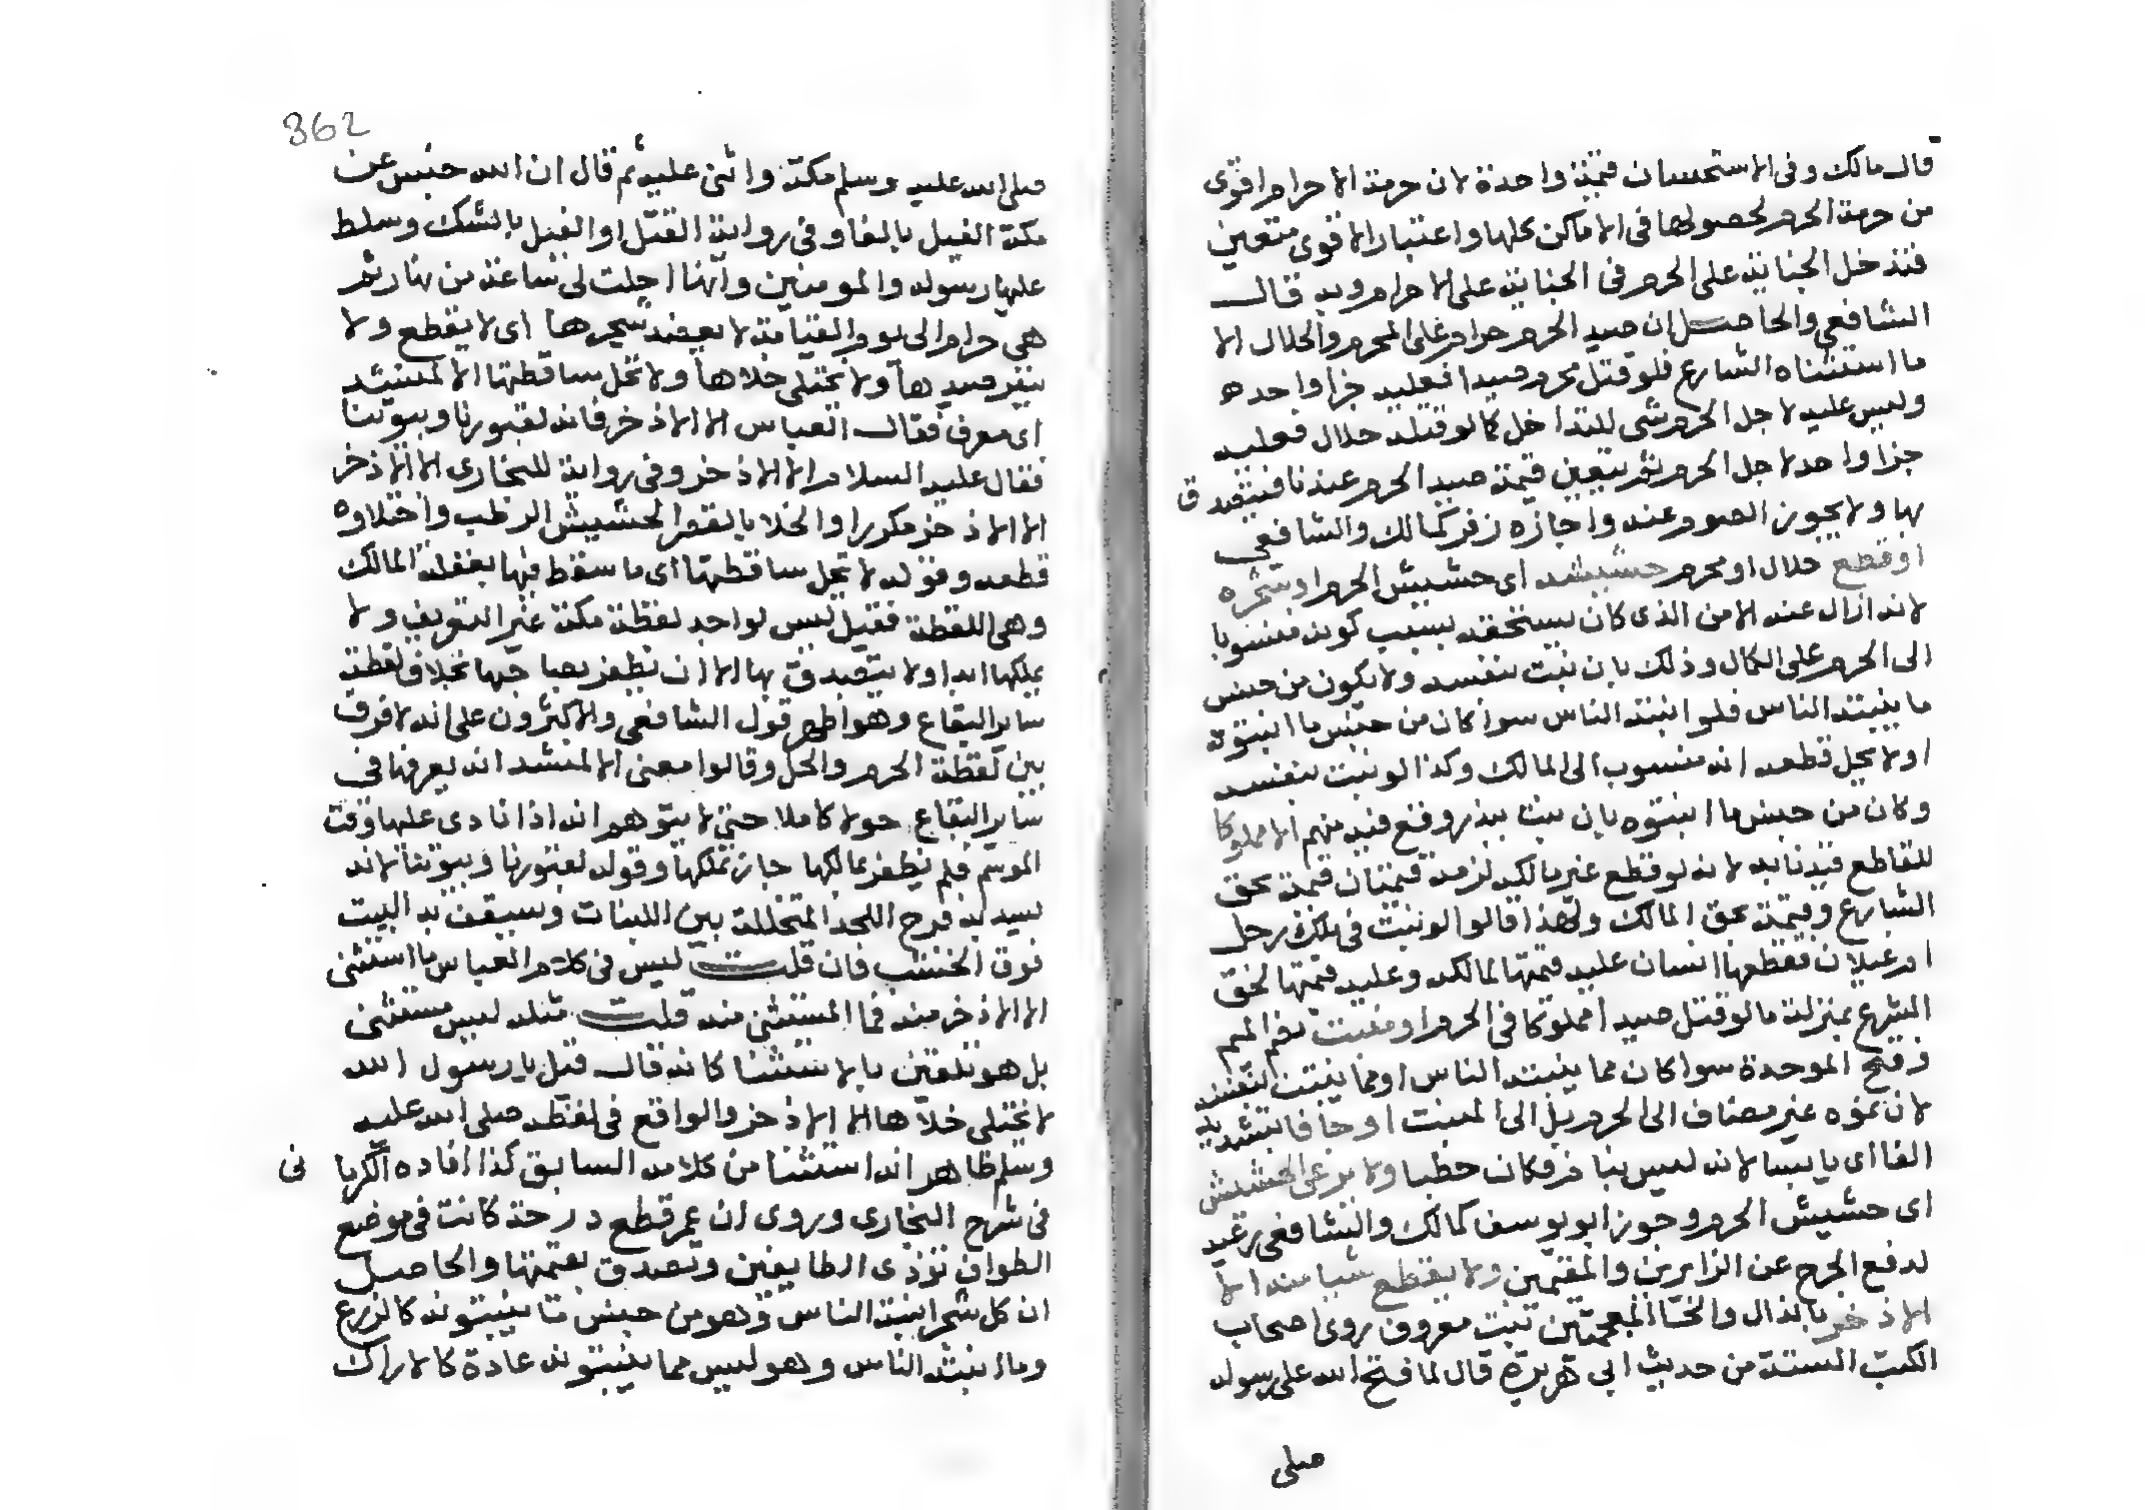 قال مالك وفى الاستحسان قيمة واحدة لان حرمة الاحرام اقوى
من حرمة الحرم لحصولها فى الاماكن كلها واعتبار الاقوى متعين
فتدخل الجناية على الحرم فى الجناية على الاحرام وبه قال
الشافعي والحاصل ان صيد الحرم حرام على المحرم والحلال الا
ما استثناه الشارع فلو قتل محرم صيدا فعليه جزا واحد
وليس عليه لاجل الحرم شى للتداخل كما لو قتله حلال فعليه
جزا واحد لاجل الحرم ثم يتعين قيمة صيد الحرم عندنا فيتصدق
بها ولا يجوز الصوم عنه واجازه زفر كمالك والشافعي
او قطع حلال او محرم حشيشه اى حشيش الحرم او شجره
لانه ازال عنه الامن الذى كان يستحقه بسبب كونه منسوبا
الى الحرم على الكمال وذلك بان نبت بنفسه ولا يكون من جنس
ما ينبته الناس فلو انبته الناس سوا كان من جنس ما انبتوه
اولا يحل قطعه انه منسوب الى المالك وكذا لو نبت بنفسه
وكان من جنس ما انبتوه بان نبت بذر وقع فيه منهم الا مملوكا
للقاطع قيدنا به لانه لو قطع غير مالكه لزمه قيمتان قيمة بحق
الشارع وقيمة بحق المالك ولهذا قالوا لو نبت فى ملك رجل
ام غيلان فقطعها انسان عليه قيمتها لمالكه وعليه قيمتها لحق
الشرع بمنزلة ما لو قتل صيدا مملوكا فى الحرم او منبت بضم الميم
وفتح الموحدة سوا كان مما ينبته الناس او مما ينبت بنفسه
لان نموه غير مضاف الى الحرم بل الى المنبت او جافا بتشديد
الفا اى يابسا لانه ليس بنا فكان حطبا ولا يرعى الحشيش
اى حشيش الحرم وجوز ابو يوسف كمالك والشافعى رعيه
لدفع الحرج عن الزايرين والمقيمين ولا يقطع شيا منه الا
الاذخر بالذال والخا المعجمتين نبت معروف روى اصحاب
الكتب الستة من حديث ابى هريرة قال لما فتح الله على رسوله
صلى
362
صلى الله عليه وسلم مكة واثنى عليه ثم قال ان الله حبس عن
مكة الفيل بالفا وفى رواية القتل او الفيل بالشك وسلط
عليها رسوله والمومنين وانها احلت لى ساعة من نهار ثم
هى حرام الى يوم القيامة لا يعضد شجرها اى لا يقطع ولا
ينفر صيدها ولا يختلى خلاها ولا تحل ساقطتها الا لمنشد
اى معرف فقال العباس الا الاذخر فانه لقبورنا وبيوتنا
فقال عليه السلام الا الاذخر وفى رواية للبخارى الا الاذخر
الا الاذخر مكررا والخلا بالقصر الحشيش الرطب واختلاوه
قطعه وقوله لا تحل ساقطتها اى ما سقط فيها بغفلة المالك
وهى اللقطة فقيل ليس لواجد لقطة مكة غير التعريف ولا
يملكها ابدا ولا يتصدق بها الا ان يظفر بصاحبها بخلاف لقطة
ساير البقاع وهو اظهر قول الشافعى والاكثرون على انه لا فرق
بين لقطة الحرم والحل وقالوا معنى الا لمنشد انه يعرفها فى
ساير البقاع حولا كاملا حتى لا يتوهم انه اذا نادى عليها وقت
الموسم فلم يظفر بمالكها جاز تملكها وقوله لقبورنا وبيوتنا لانه
يسد به فرج اللحد المتخللة بين اللبنات وسقف به البيت
فوق الخشب فان قلت ليس فى كلام العباس ما استثنى
الا الاذخر منه فما المستثنى منه قلت مثله ليس مستثنى
بل هو تلقين بالاستثنا كانه قال قيل يا رسول الله
لا يختلى خلاها الا الاذخر والواقع فى لفظه صلى الله عليه
وسلم ظاهر انه استثنا من كلامه السابق كذا افاده الكرمانى
فى شرح البخارى وروى ان عمر قطع درحة كانت فى موضع
الطواف تؤذى الطايفين وتصدق بقيمتها والحاصل
ان كل شجر انبته الناس وهو من جنس ما ينبتونه كالزرع
وما انبته الناس وهو ليس مما ينبتونه عادة كالاراك